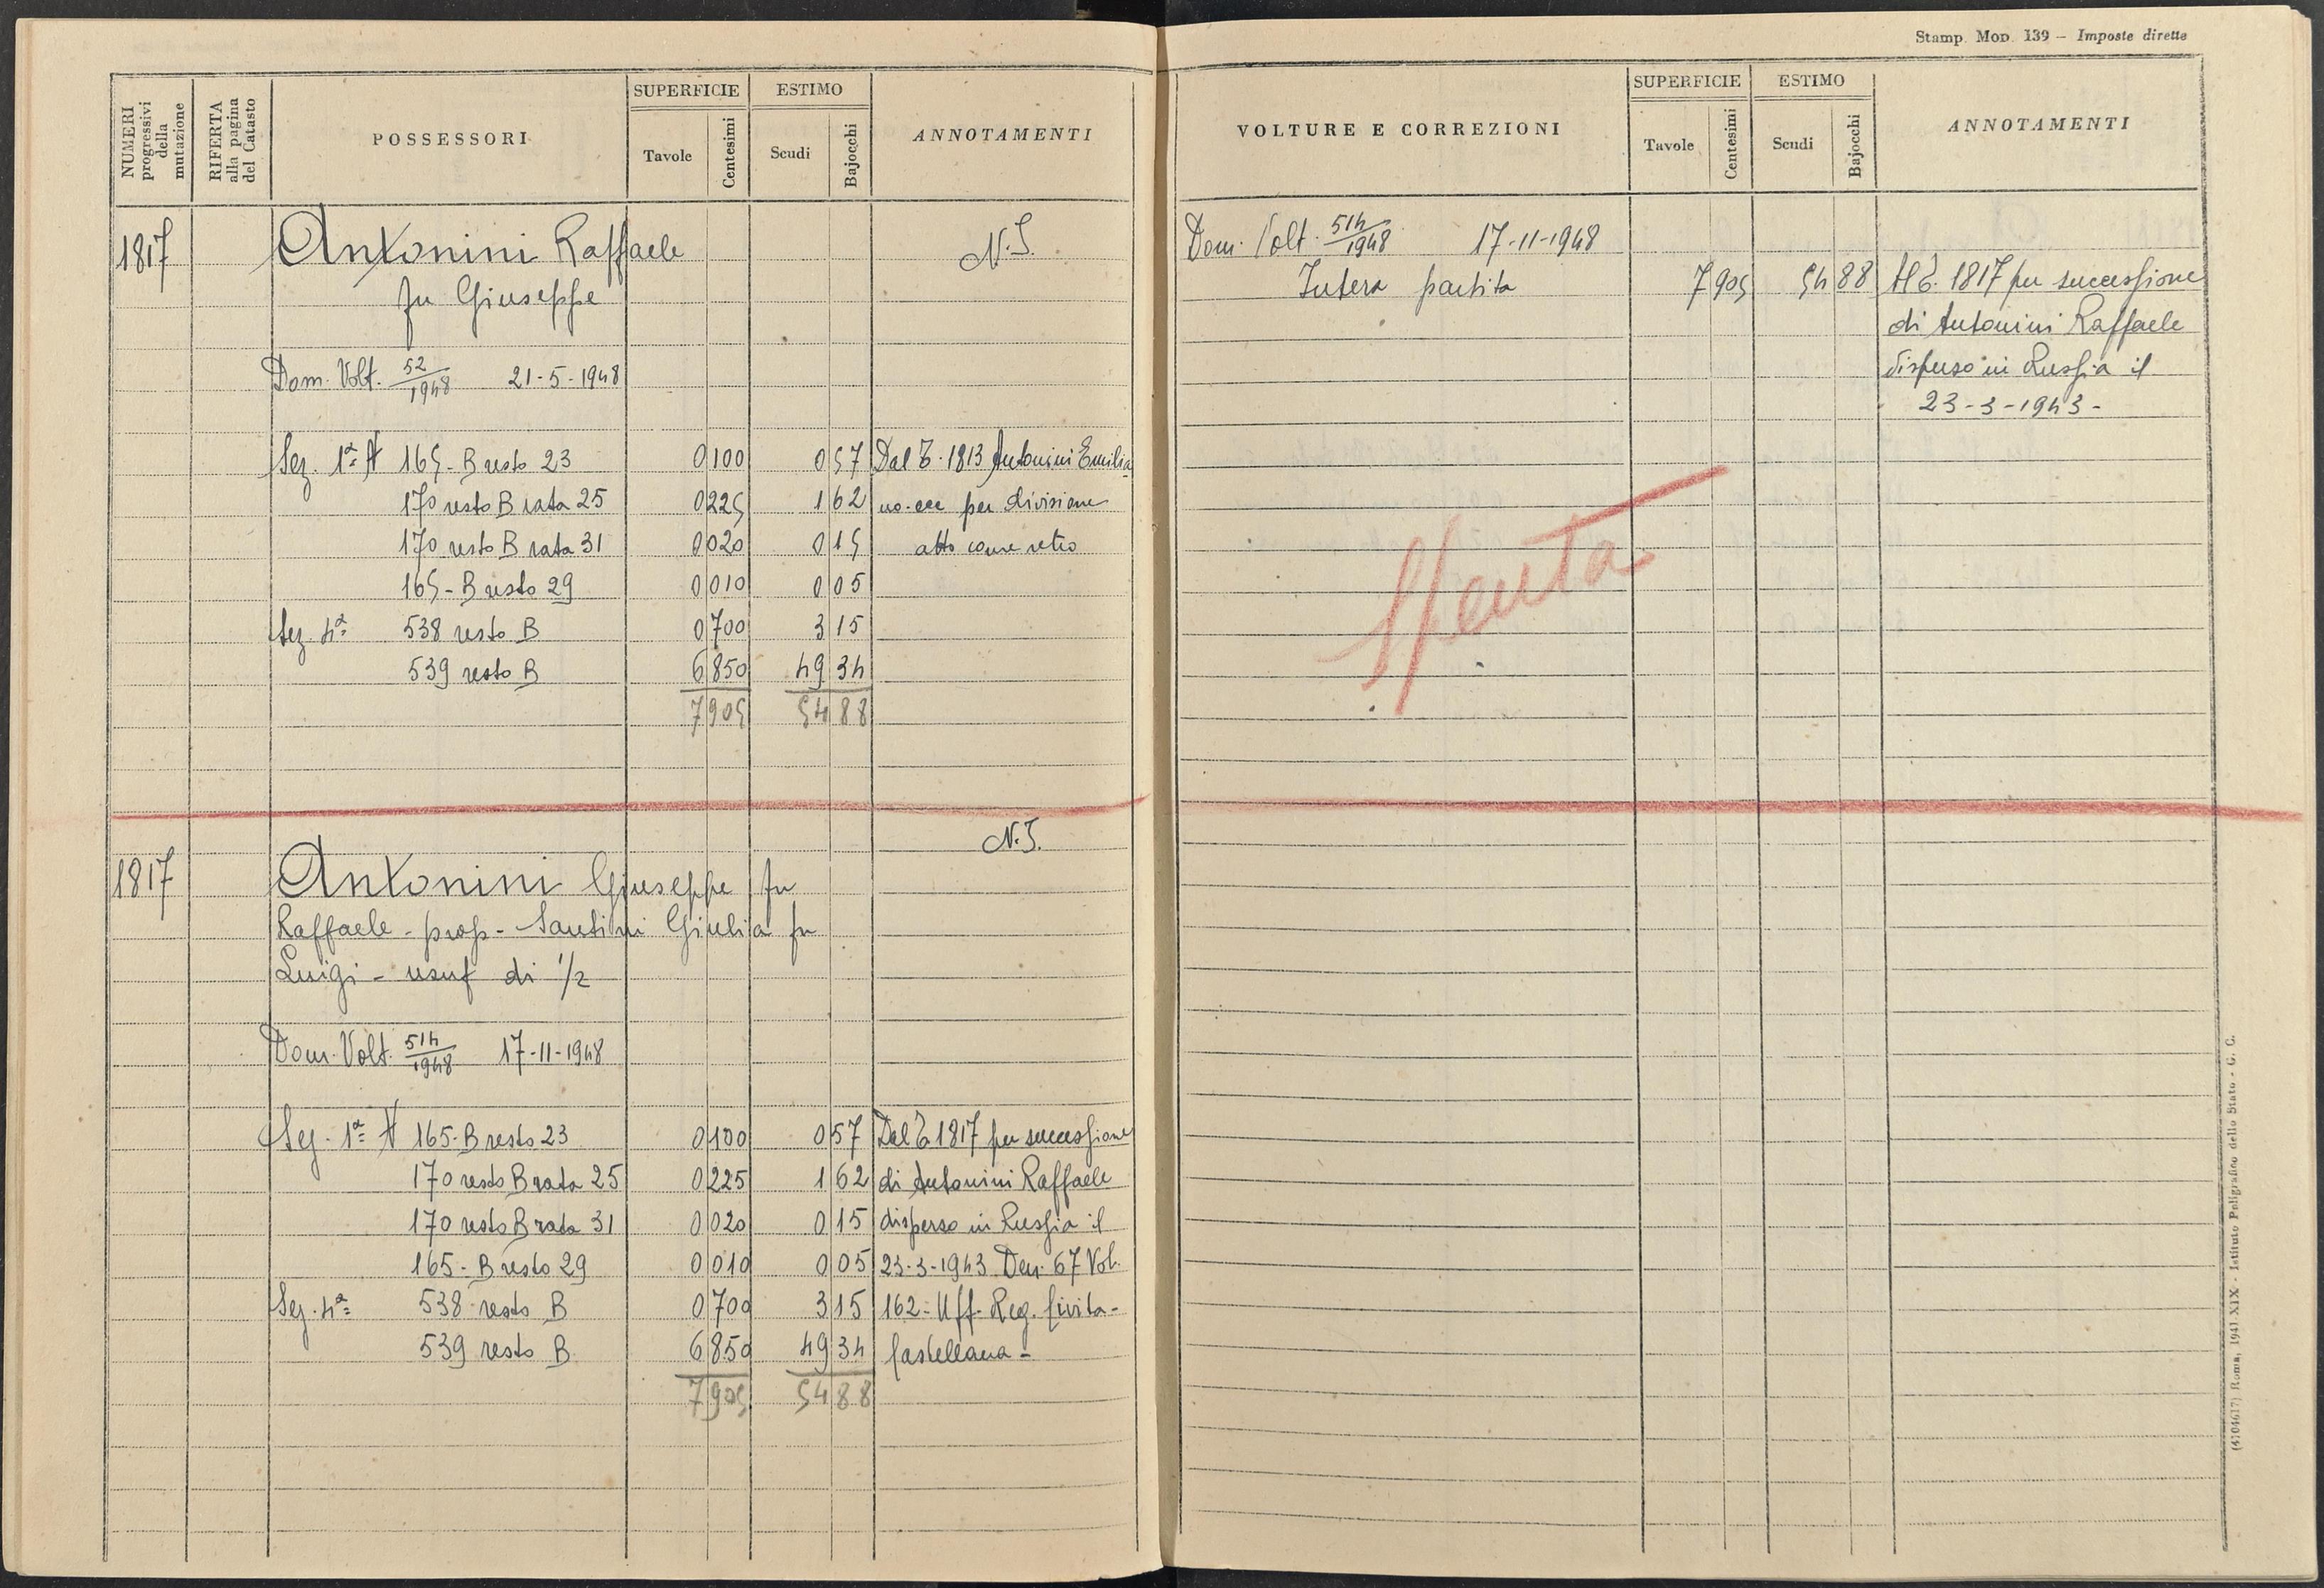 NUMERI progressivi della mutazione
RIFERTA alla pagina del Catasto
POSSESSORI
SUPERFICIE
Tavole
Centesimi
ESTIMO
Scudi
Bajocchi
ANNOTAMENTI
1817
Antonini Raffaele
N.I.
fu Giuseppe
Dom. Volt. 52/1948 21-5-1948
Sez. 1ª A 165-B resto 23 0 100 0 57 Dal T. 1813 Antonini Emilia
170 resto B rata 25 0 225 1 62 no-ecc per divisione
170 resto B rata 31 0 020 0 15 atto come retro
165-B resto 29 0 010 0 05
Sez. 4ª 538 resto B 0 700 3 15
539 resto B 6 850 49 34
7 905 54 88
N.I.
1817
Antonini Giuseppe fu
Raffaele - prop - Santini Giulia fu
Luigi - usuf di 1/2
Dom. Volt. 514/1948 17-11-1948
Sez. 1ª A 165-B resto 23 0 100 0 57 Dal T 1817 per successione
170 resto B rata 25 0 225 1 62 di Antonini Raffaele
170 resto B rata 31 0 020 0 15 disperso in Russia il
165-B resto 29 0 010 0 05 23-3-1943 Den. 67 Vol.
Sez. 4ª 538 resto B 0 700 3 15 162-Uff. Reg. Civita-
539 resto B 6 850 49 34 Castellana-
7 905 54 88
Stamp. Mod. 139 - Imposte dirette
VOLTURE E CORREZIONI
SUPERFICIE
Tavole
Centesimi
ESTIMO
Scudi
Bajocchi
ANNOTAMENTI
Dom. Volt. 514/1948 17-11-1948
Intera partita 7 905 54 88 Al T. 1817 per successione
di Antonini Raffaele
disperso in Russia il
23-3-1943-
Spenta
(4104617) Roma, 1941-XIX - Istituto Poligrafico dello Stato - G. C.